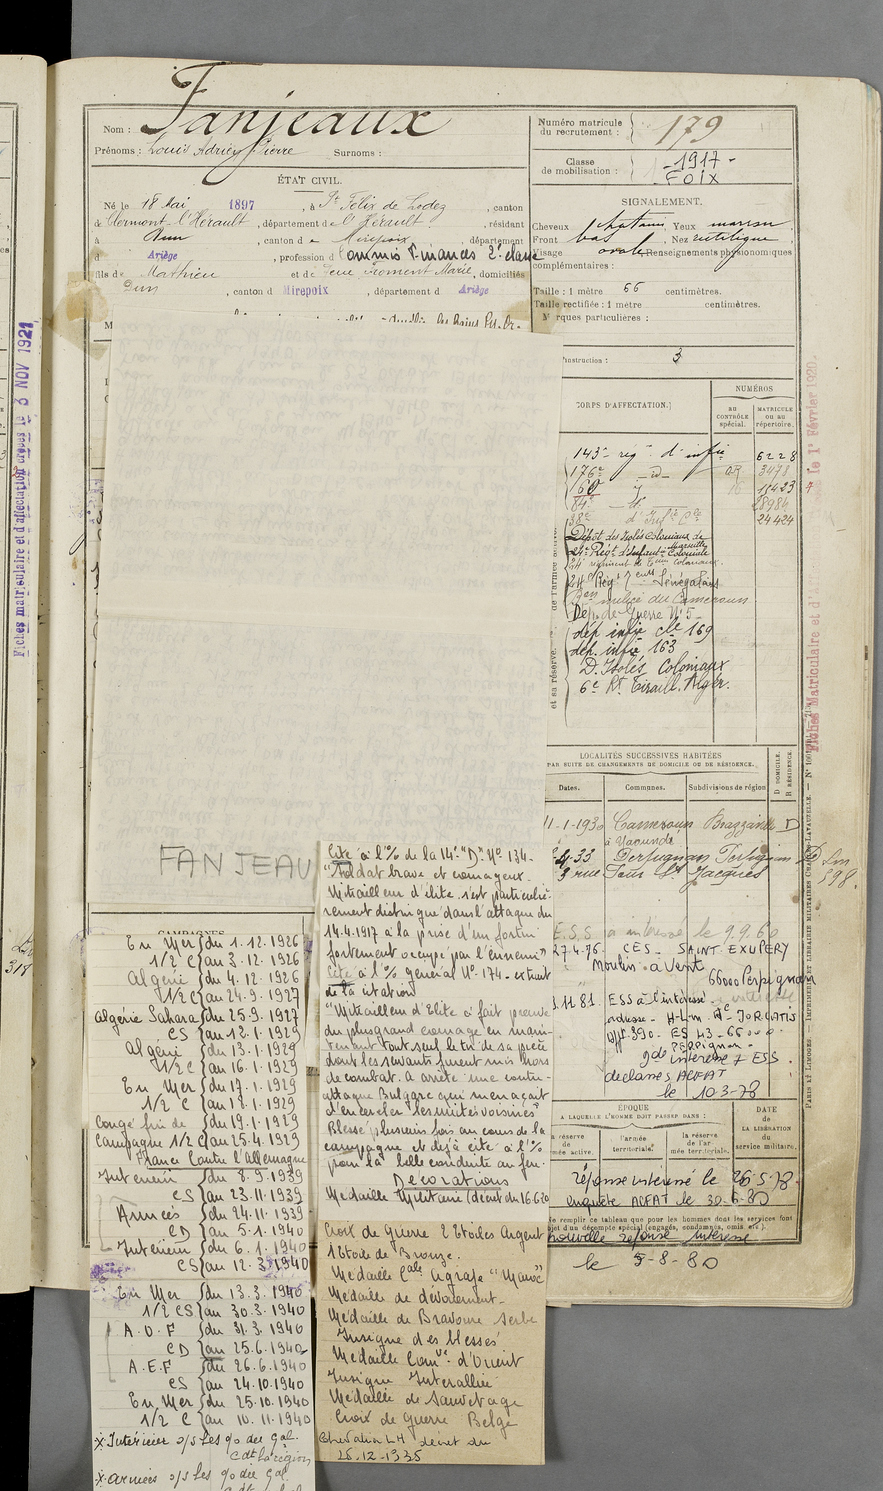 Nom : Fanjeaux
Prénoms : Louis Adrien Pierre Surnoms :
Numéro matricule du recrutement : 179
Classe de mobilisation : - 1917 -
FOIX
ÉTAT CIVIL.
Né le 18 Mai 1897, à St Félix de Lodez, canton
de Clermont-l'Hérault, département de l'Hérault, résidant
à Dun, canton de Mirepoix, département
d Ariège, profession d Commis Finances 2e classe
fils de Mathieu et de Marie, domiciliés
Dun, canton d Mirepoix, département d Ariège
les Bains
SIGNALEMENT.
Cheveux chatain Yeux marron
Front bas Nez rectiligne
Visage ovale Renseignements physionomiques
complémentaires :
Taille : 1 mètre 66 centimètres.
Taille rectifiée : 1 mètre centimètres.
rques particulières :
instruction : 3
CORPS D'AFFECTATION.
NUMÉROS
AU CONTRÔLE spécial.
MATRICULE OU AU répertoire.
143e rég t d'infie 6228
176e - d - 3478
60 11423
84e
38e d'Infie Cle 24424
Dépôt des Isolés Coloniaux de Marseille
24e Régt d'Infant. Coloniale
24 régiment de Coloniaux
24e Régt Sénégalais
milice du Cameroun
Dép. de Guerre N° 5
dép infie cle 169
dép. infie 163
D. Isolés Coloniaux
6e Rt Tiraill. Alger.
et sa réserve.
LOCALITÉS SUCCESSIVES HABITÉES
PAR SUITE DE CHANGEMENTS DE DOMICILE OU DE RÉSIDENCE.
Dates. Communes. Subdivisions de région D DOMICILE. R RÉSIDENCE
11-1-1930 Cameroun Brazzaville D
à Yaounde
4-33 Perpignan Perpignan D
3 rue St Jacques
E.S.S a intéressé le 9.9.60
27-4-76. CES - SAINT EXUPERY
Moulin - a Vent
66000 Perpignan
11 81. ESS à l'intéressé
adresse - H-L-M
Appt. 390 - 66000
PERPIGNAN -
intéressé ESS.
declares ACFAT
le 10-3-78
ÉPOQUE
A LAQUELLE L'HOMME DOIT PASSER DANS :
la réserve de armée active.
l'armée territoriale.
la réserve de l'ar mée territoriale.
DATE de LA LIBÉRATION du service militaire.
réponse intéressé le 26-5-78
enquête ACFAT le 30-6-80
Ne remplir ce tableau que pour les hommes dont les services font
objet d'un décompte spécial (engagés, condamnés, omis etc.).
nouvelle réponse intéressé
le 5-8-80
Fiches matriculaire et d'affectation créées le 3 NOV 1921
Fiches Matriculaire et d' le 1er Février 1920.
PARIS ET LIMOGES. — IMPRIMERIE ET LIBRAIRIE MILITAIRES CHARLES-LAVAUZELLE.
598.
318
FANJEAU
CAMPAGNES
En Mer du 1.12.1926
1/2 C au 3.12.1926
Algérie du 4.12.1926
1/2 C au 24.9.1927
Algérie Sahara du 25.9.1927
CS au 12.1.1929
Algérie du 13.1.1929
1/2 C au 16.1.1929
En Mer du 17.1.1929
1/2 C au 18.1.1929
Congé fin de du 19.1.1929
Campagne 1/2 C au 25.4.1929
France Contre l'Allemagne
Intérieur du 8.9.1939
CS au 23.11.1939
Armées du 24.11.1939
CD au 5.1.1940
Intérieur du 6.1.1940
CS au 12.3.1940
En Mer du 13.3.1940
1/2 CS au 30.3.1940
A.O.F du 31.3.1940
CD au 25.6.1940
A.E.F du 26.6.1940
CS au 24.10.1940
En Mer du 25.10.1940
1/2 C au 10.11.1940
x Intérieur o/s les o/o du Gal.
Cdt la région
x armées o/s les o/o du Gal.
Cité à l'% de la 14e "D" N° 134-
"Soldat brave et courageux.
Mitrailleur d'élite s'est particuliè-
rement distingué dans l'attaque du
14.4.1917 à la prise d'un fortin
fortement occupé par l'ennemi"
Cité à l'% général N° 174 - extrait
de la citation
"Mitrailleur d'Elite a fait preuve
du plus grand courage en main-
tenant tout seul le tir de sa pièce
dont les servants furent mis hors
de combat. A arrêté une contre-
attaque Bulgare qui menaçait
d'encercler les unités voisines"
Blessé plusieurs fois au cours de la
campagne et déjà cité à l'%
pour la belle conduite au feu.
Décorations
Médaille Militaire (décret du 16.6.20
Croix de Guerre 2 Etoiles Argent
1 Etoile de Bronze.
Médaille Cale Agrafe "Maroc"
Médaille de dévouement -
Médaille de Bravoure Serbe
Insigne des blessés
Médaille Comve d'Orient
Insigne Interalliée
Médaille de Sauvetage
Croix de Guerre Belge
Chevalier LH décret du
26.12.1935